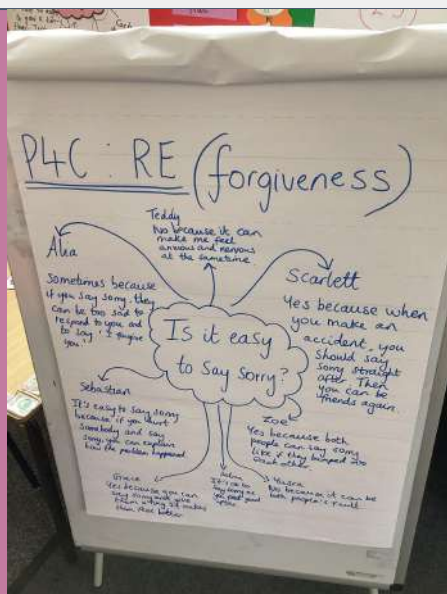 P4C : RE (forgiveness)
Teddy
No because it can
make me feel
anxious and nervous
at the sametime.
Alia
Sometimes because
if you say sorry, they
can be too sad to
respond to you and
to say 'I forgive
you'.
Scarlett
Yes because when
you make an
accident, you
should say
sorry straight
after. Then
you can be
friends again.
Is it easy
to say sorry?
Sebastian
It's easy to say sorry
because if you hurt
somebody and say
sorry, you can explain
how the problem happened
Zoe
Yes because both
people can say sorry
like if they bumped into
each other.
Grace
Yes because you can
say sorry and give
them a hug. It makes
them feel better.
It's ok to
say sorry as
you feel good
Yusra
No because it can be
both people's fault